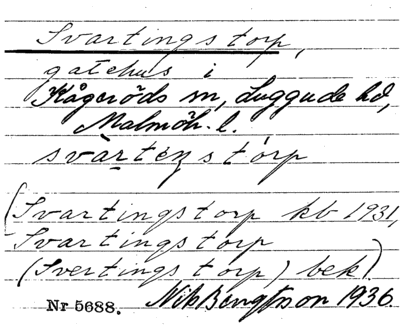 Svartingstorp,
gatehus i
Kågeröds sn, Luggude hd,
Malmöh. l.
svàrtenstórp
(Svartingstorp kb 1931,
Svartingstorp
(Svertingstorp) bek).
Nr 5688. Nils Bengtsson 1936.